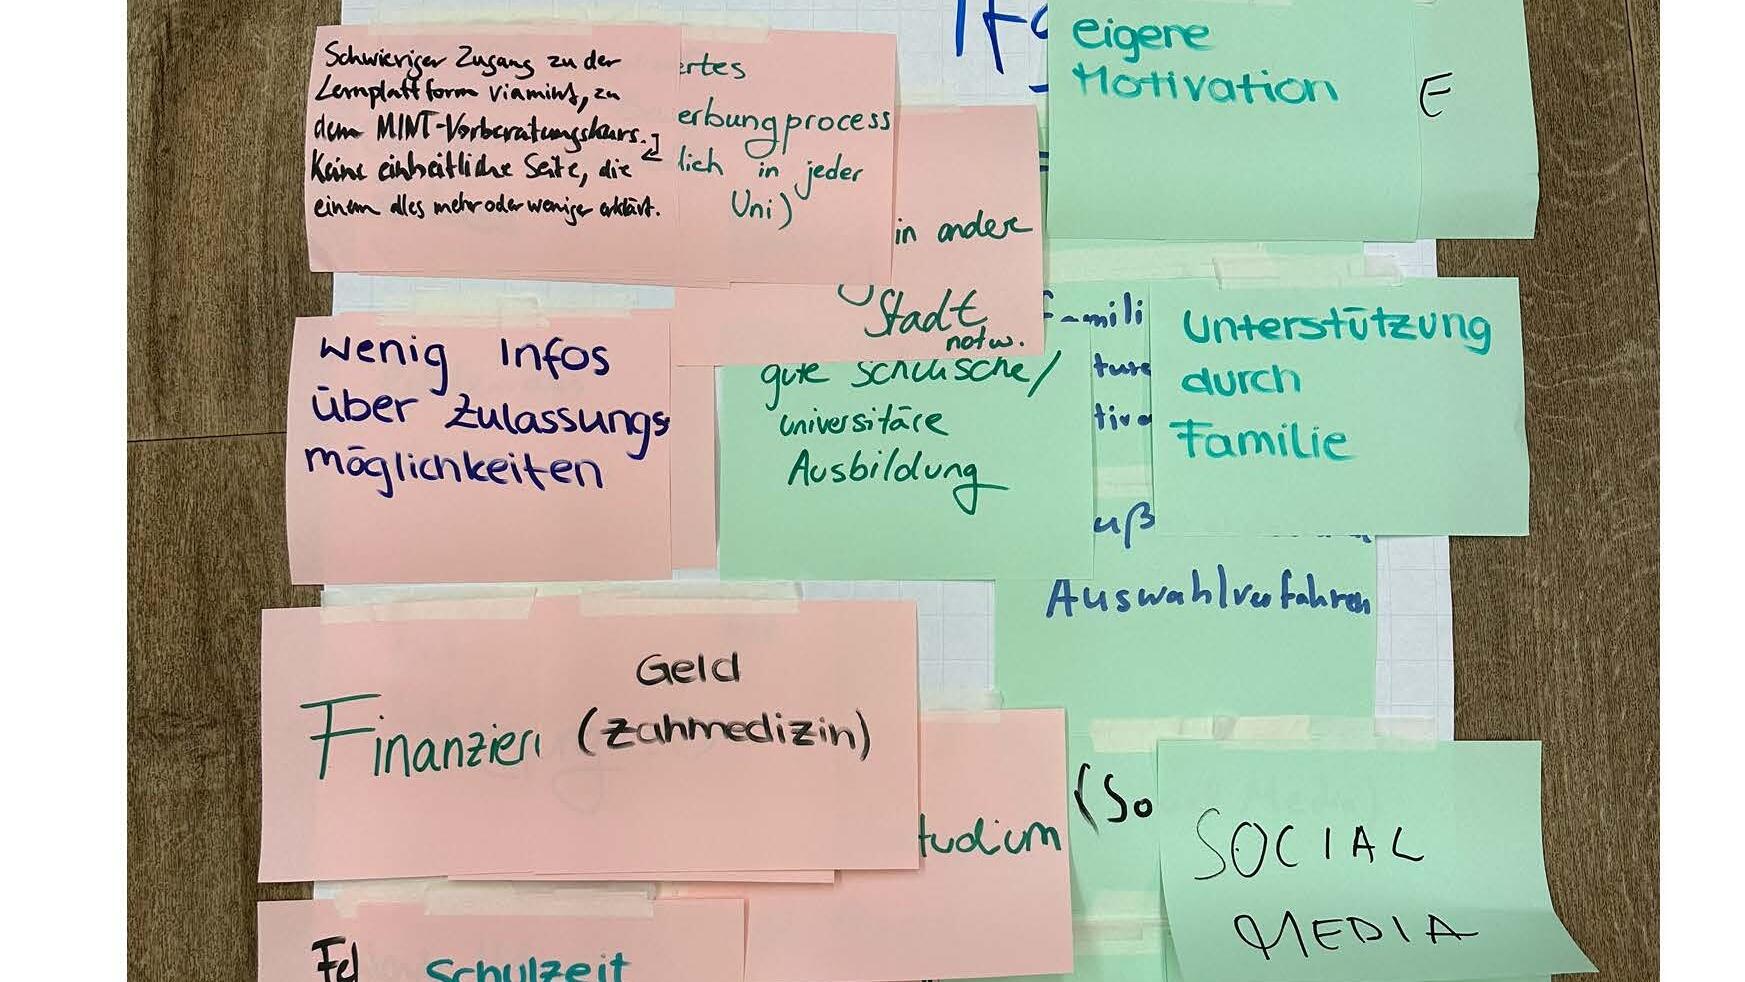 Schwieriger Zugang zu der
Lernplattform viamint, zu
dem MINT-Vorberatungskurs.
Keine einheitliche Seite, die
einem alles mehr oder weniger erklärt.
ertes
erbungprocess
lich in jeder
Uni)
in andere
Stadt
notw.
eigene
Motivation
E
wenig Infos
über Zulassungs
möglichkeiten
gute schulische/
universitäre
Ausbildung
Famili
ture
tiva
uß
Auswahlverfahren
Unterstützung
durch
Familie
Finanzieru
Geld
(Zahmedizin)
tudium
(So
SOCIAL
MEDIA
Fel
Schulzeit